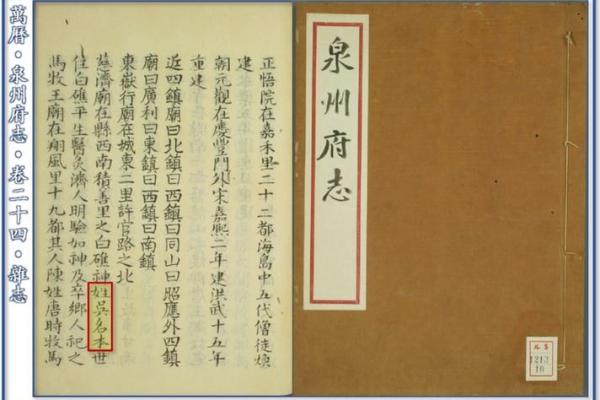 萬曆・泉州府志・卷二十四・雜志
泉州府志
正悟院在嘉禾里二十二都海島中五代僧徒煥
建
朝元觀在慶豐門外宋嘉熙二年建洪武十五年
重建
近四鎮廟曰北鎮曰西鎮曰同山曰昭應外四鎮
廟曰廣利曰東鎮曰西鎮曰南鎮
東嶽行廟在城東二里許官路之北
慈濟廟在縣西南積善里之白礁神姓吳名本世
住白礁平生醫灸濟人明驗如神及卒鄉人祀之
馬牧王廟在翔風里十九都其人陳姓唐時牧馬
1212
10